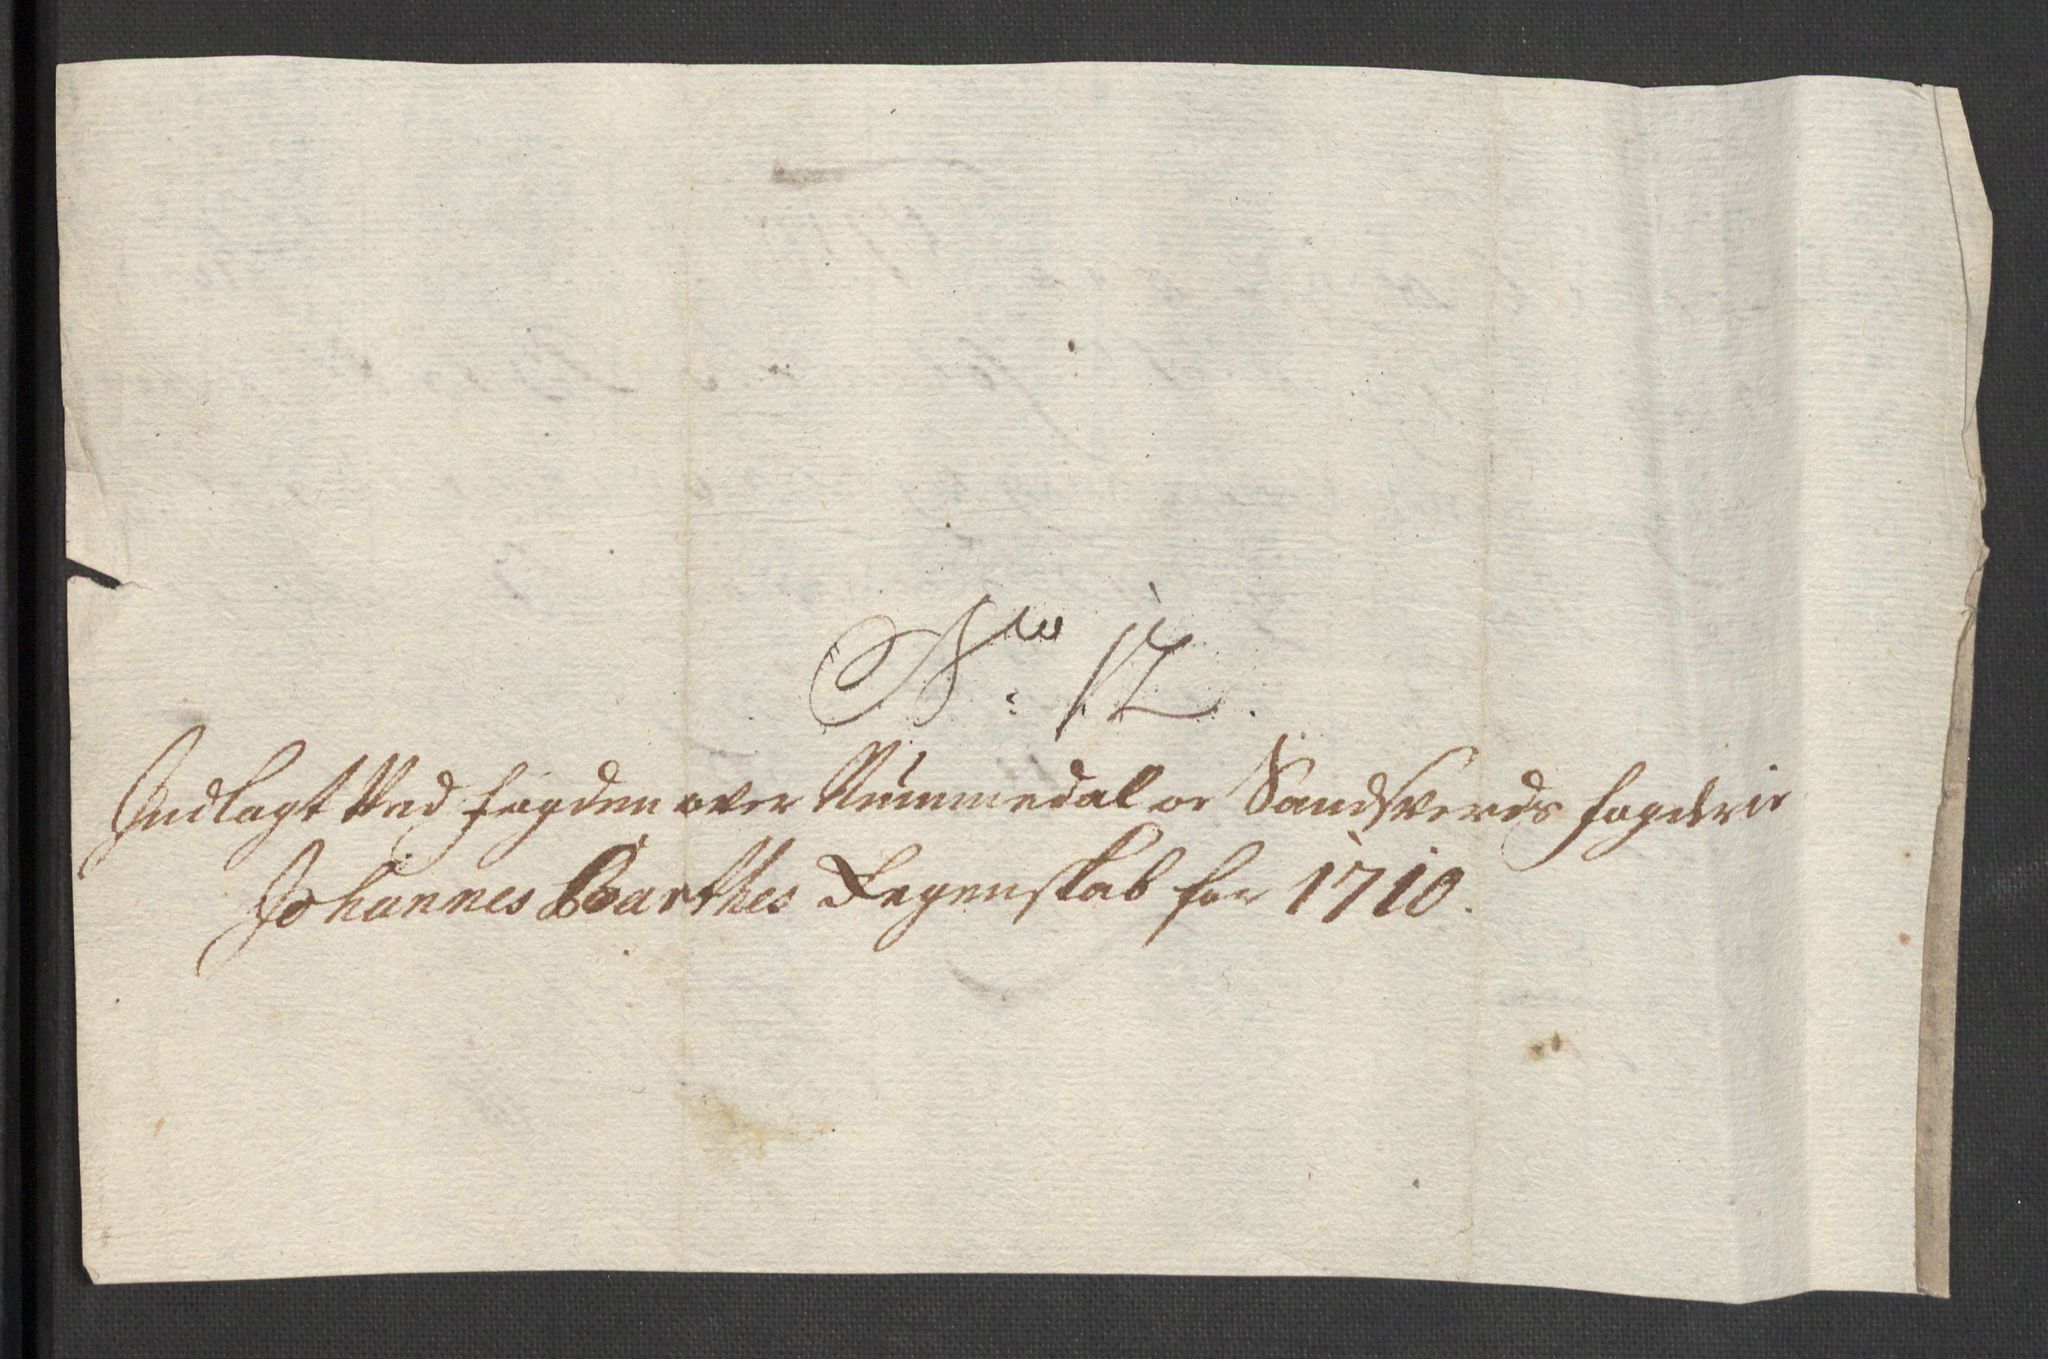 No: 12.
Indlagt Ved fogden over Nummedal oc Sandsverds fogderie
Johannes Barthes Regenskab for 1710.